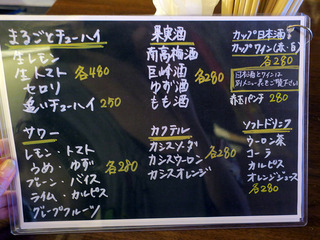 まるごとチューハイ
生レモン
生トマト 各480
セロリ
追いチューハイ 250
果実酒
南高梅酒
巨峰酒 各280
ゆず酒
もも酒
カップ日本酒
カップワイン(赤・白)
各280
日本酒とワインは
別メニュー表をご覧下さい
赤玉パンチ 280
サワー
レモン・トマト
うめ・ゆず 各280
プレーン・バイス
ライム・カルピス
グレープフルーツ
カクテル
カシスソーダ
カシスウーロン 各280
カシスオレンジ
ソフトドリンク
ウーロン茶
コーラ
カルピス
オレンジジュース
各280